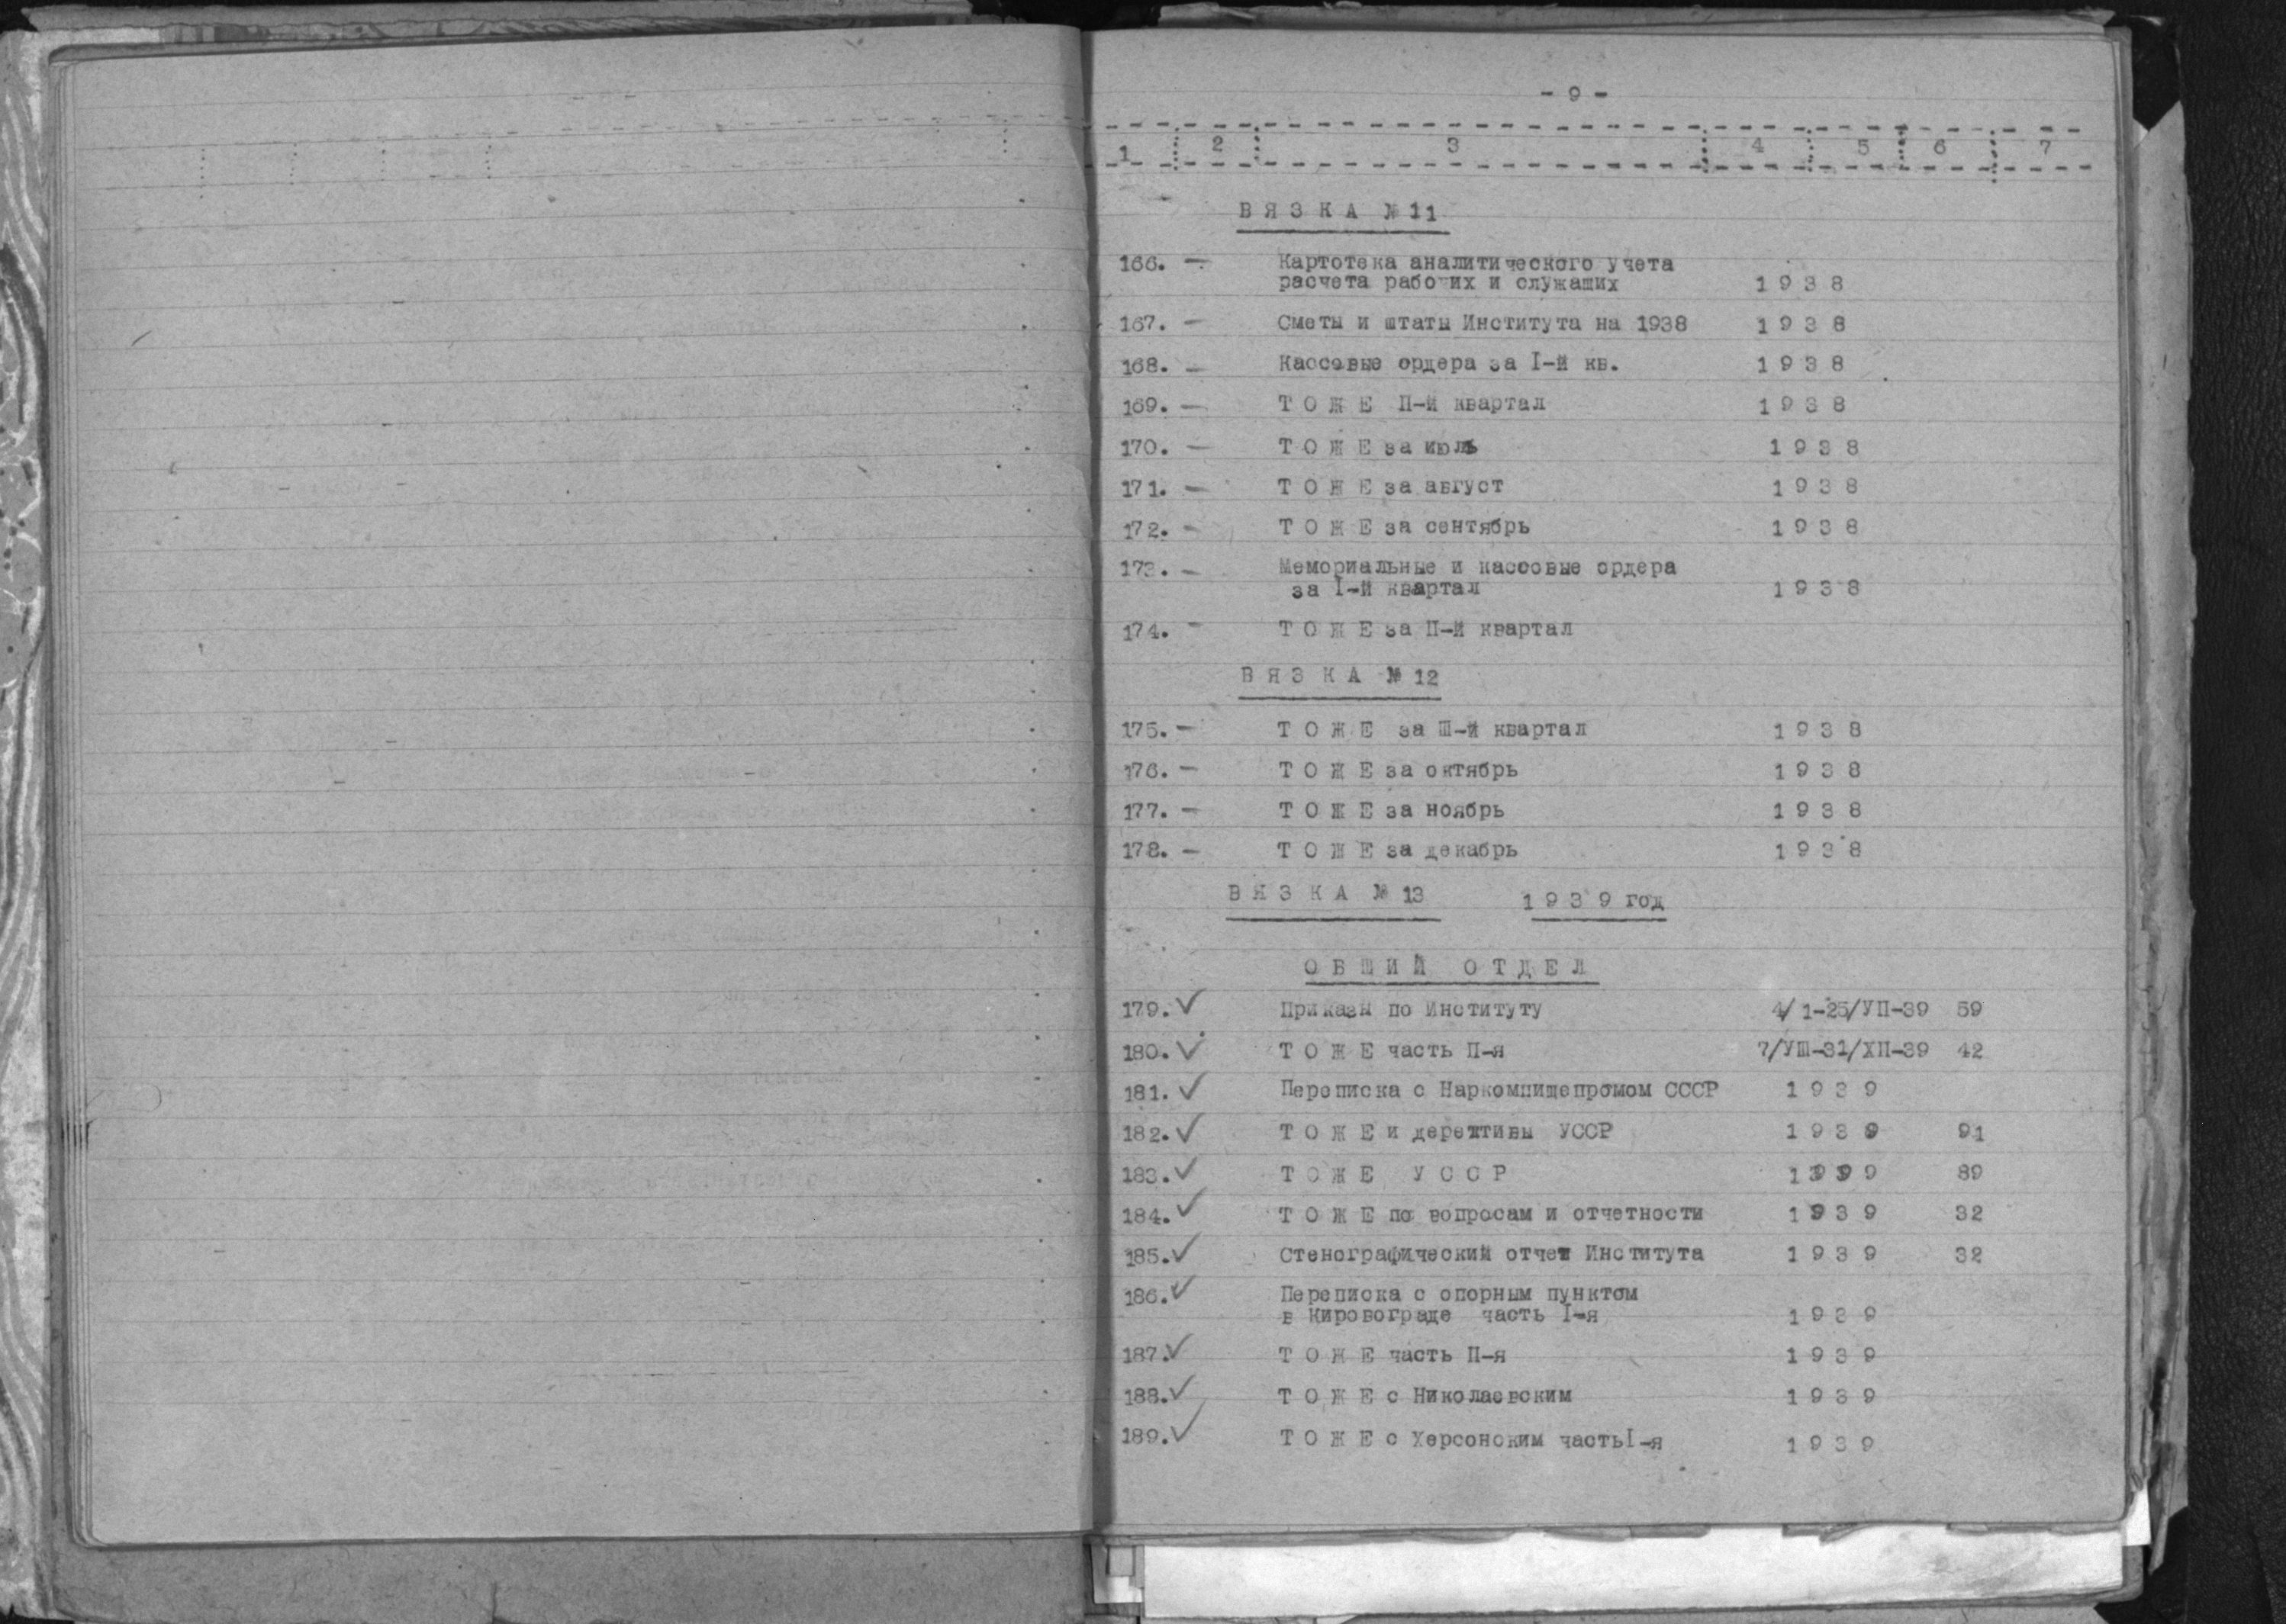 - 9 -
1 2 3 4 5 6 7
В Я З К А № 11
166. — Картотека аналитического учета
расчета рабочих и служаших 1 9 3 8
167. — Сметы и штаты Института на 1938 1 9 3 8
168. — Кассовые ордера за I-й кв. 1 9 3 8
169. — Т О Ж Е П-й квартал 1 9 3 8
170. — Т О Ж Е за июль 1 9 3 8
171. — Т О Ж Е за август 1 9 3 8
172. — Т О Ж Е за сентябрь 1 9 3 8
173. — Мемориальные и кассовые ордера
за I-й квартал 1 9 3 8
174. - Т О Ж Е за П-й квартал
В Я З К А № 12
175. — Т О Ж Е за Ш-й квартал 1 9 3 8
176. — Т О Ж Е за октябрь 1 9 3 8
177. — Т О Ж Е за ноябрь 1 9 3 8
178. — Т О Ж Е за декабрь 1 9 3 8
В Я З К А № 13 1 9 3 9 год
О Б Ш И Й О Т Д Е Л
179. ✓ Приказы по Институту 4/ 1-25/УП-39 59
180. ✓ Т О Ж Е часть П-я 7/УШ-31/ХП-39 42
181. ✓ Переписка с Наркомпищепромом СССР 1 9 3 9
182. ✓ Т О Ж Е и дерективы УССР 1 9 3 9 91
183. ✓ Т О Ж Е У С С Р 1 9 3 9 89
184. ✓ Т О Ж Е по вопросам и отчетности 1 9 3 9 32
185. ✓ Стенографический отчет Института 1 9 3 9 32
186. ✓ Переписка с опорным пунктом
в Кировограде часть I-я 1 9 3 9
187. ✓ Т О Ж Е часть П-я 1 9 3 9
188. ✓ Т О Ж Е с Николаевским 1 9 3 9
189. ✓ Т О Ж Е с Херсонским часть I-я 1 9 3 9